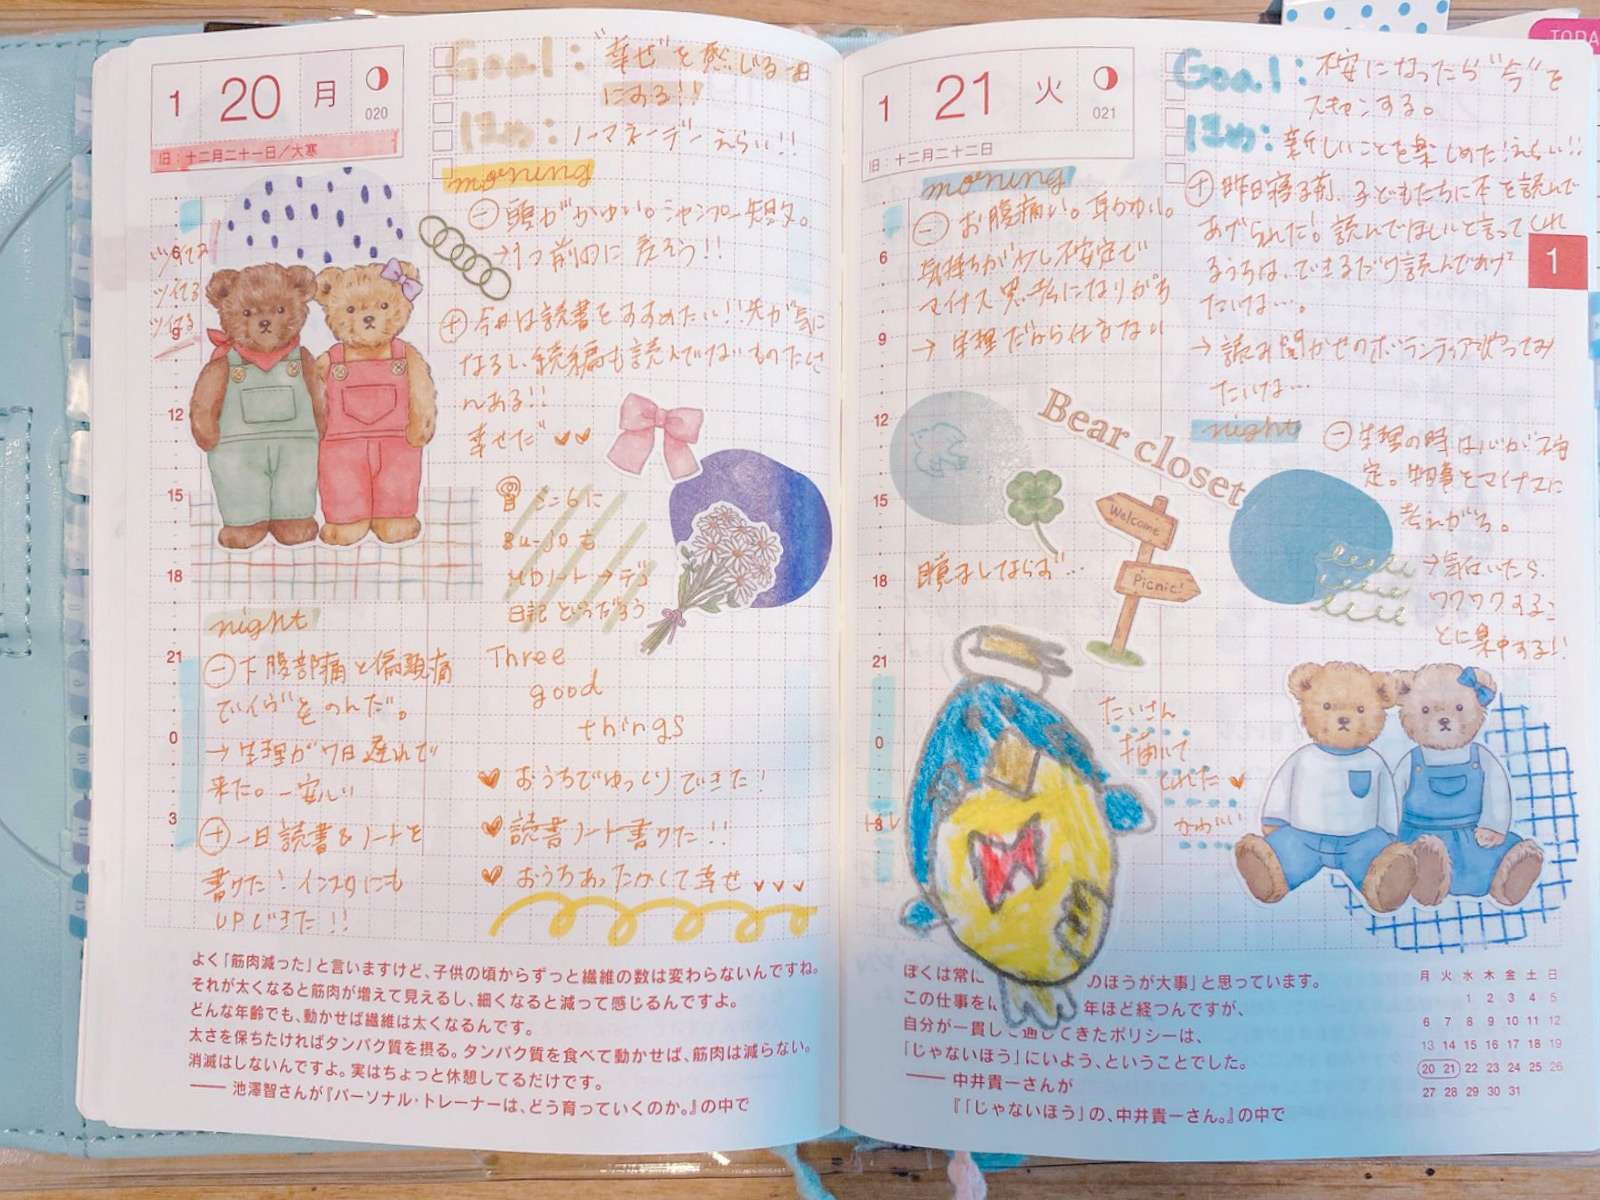 1 20 月
020
旧：十二月二十一日／大寒
Goal："幸せ"を感じる一日
にする!!
ほめ：ノーマネーデー えらい!!
morning
⊖ 頭がかゆい。シャンプー
→1つ前のに戻そう!!
ツイてる
ツイてる
ツイてる
⊕ 今日は読書をすすめたい!!先が気に
なるし、続編も読んでないものたくさ
んある!!
幸せだ ♥♥
6
9
12
15
18
21
0
3
ミニ6に
su-jo も
MDノート→デコ
日記 どうだろう
night
⊖ 下腹部痛と偏頭痛
でイヴをのんだ。
→生理が7日遅れで
来た。一安心
⊕ 一日読書&ノートを
書けた! インスタにも
UPできた!!
Three
good
things
♥ おうちでゆっくりできた!
♥ 読書ノート書けた!!
♥ おうちあったかくて幸せ ♥♥♥
よく「筋肉減った」と言いますけど、子供の頃からずっと繊維の数は変わらないんですね。
それが太くなると筋肉が増えて見えるし、細くなると減って感じるんですよ。
どんな年齢でも、動かせば繊維は太くなるんです。
太さを保ちたければタンパク質を摂る。タンパク質を食べて動かせば、筋肉は減らない。
消滅はしないんですよ。実はちょっと休憩してるだけです。
―― 池澤智さんが『パーソナル・トレーナーは、どう育っていくのか。』の中で
TODA
1 21 火
021
旧：十二月二十二日
Goal：不安になったら"今"を
スキャンする。
ほめ：新しいことを楽しめた!えらい!!
morning
⊖ お腹痛い。耳かゆい。
気持ちが少し不安定で
マイナス思考になりがち
→ 生理だから仕方ない
⊕ 昨日寝る前、子どもたちに本を読んで
あげられた! 読んでほしいと言ってくれ
るうちは、できるだけ読んであげ
たいけど…。
→ 読み聞かせのボランティアやってみ
たいけど…
1
6
9
12
15
18
21
0
3
night
⊖ 生理の時は心が不安
定。物事をマイナスに
考えがち。
→気付いたら、
ワクワクするこ
とに集中する!!
Bear closet
Welcome
Picnic!
たいさん
描いて
くれた ♥
かわいい
ぼくは常に のほうが大事」と思っています。
この仕事を 年ほど経つんですが、
自分が一貫して通してきたポリシーは、
「じゃないほう」にいよう、ということでした。
―― 中井貴一さんが
『「じゃないほう」の、中井貴一さん。』の中で
月 火 水 木 金 土 日
1 2 3 4 5
6 7 8 9 10 11 12
13 14 15 16 17 18 19
20 21 22 23 24 25 26
27 28 29 30 31